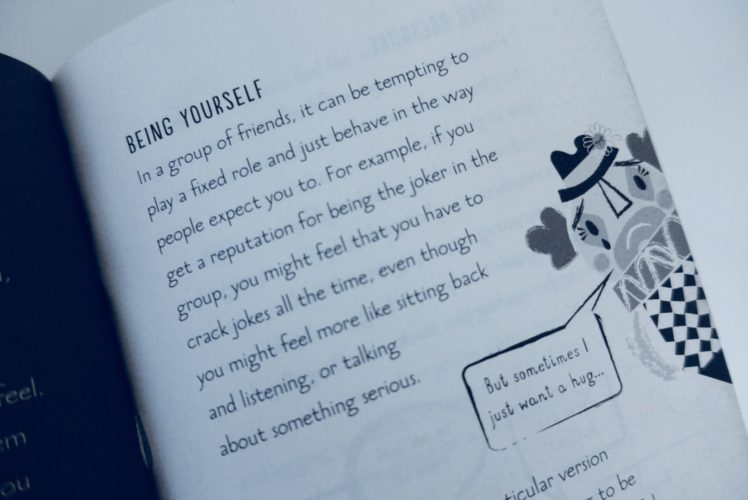 BEING YOURSELF
In a group of friends, it can be tempting to
play a fixed role and just behave in the way
people expect you to. For example, if you
get a reputation for being the joker in the
group, you might feel that you have to
crack jokes all the time, even though
you might feel more like sitting back
and listening, or talking
about something serious.
But sometimes I
just want a hug...
ticular version
to be
feel.
em
ou